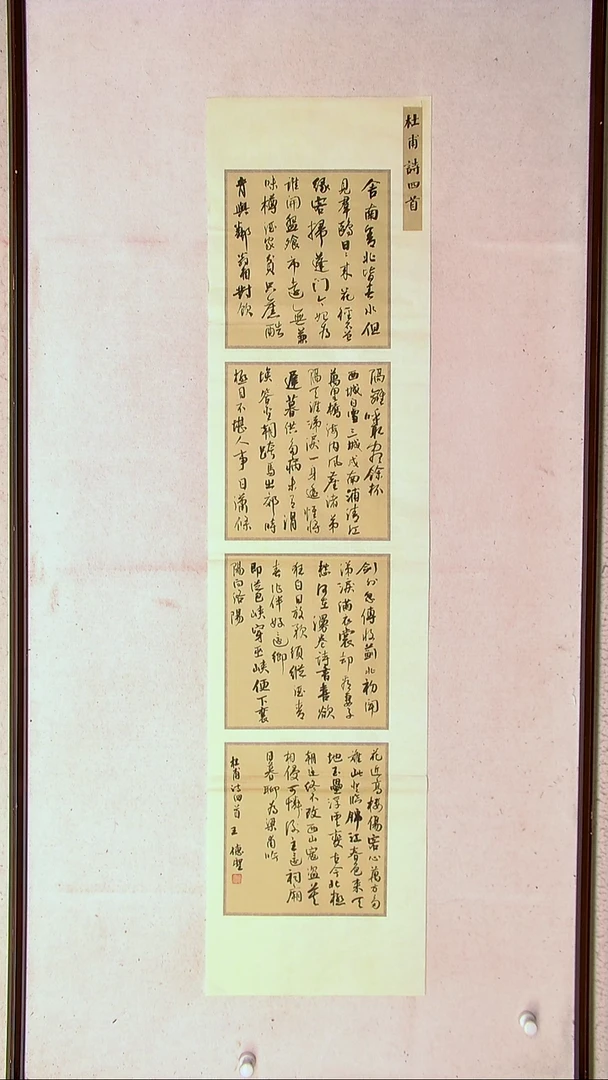 杜甫詩四首
舍南舍北皆春水但
見羣鷗日〻來花徑不曾
緣客掃蓬门今始為
誰開盤飱市遠無兼
味樽酒家貧只舊醅
肯與鄰翁相對飲
隔籬呼取盡餘杯
西城白雪三城戍南浦清江
萬里橋海内風塵諸弟
隔天涯涕淚一身遥惟將
遲暮供多病未有涓
埃答聖朝跨馬出郊時
極目不堪人事日蕭條
劍外忽傳收薊北初聞
涕淚滿衣裳却看妻子
愁何在漫卷詩書喜欲
狂白日放歌須縱酒青
春作伴好還鄉
即從巴峽穿巫峽便下襄
陽向洛陽
花近高樓傷客心萬方多
難此登臨錦江春色來天
地玉壘浮雲變古今北極
朝廷終不改西山寇盜莫
相侵可憐後主還祠廟
日暮聊為梁甫吟
杜甫詩四首 王德